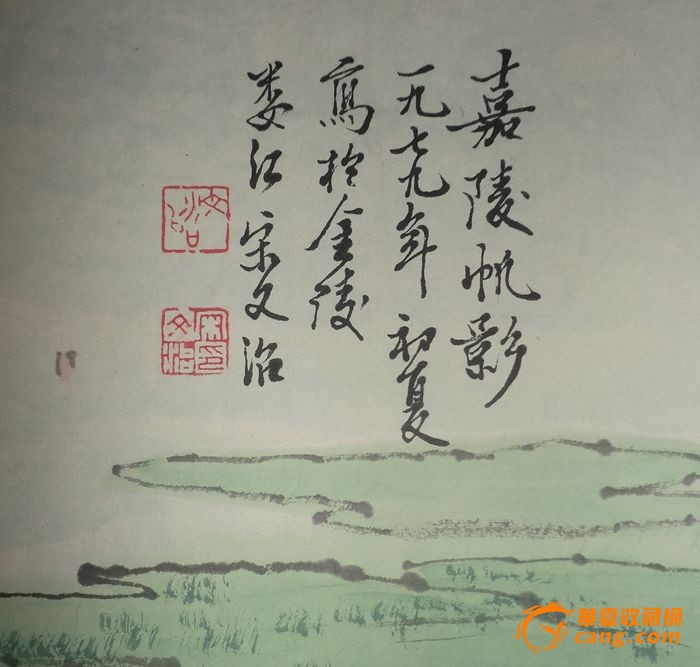 嘉陵帆影
一九七九年初夏
寫於金陵
娄江宋文治
文治
宋文治印
華夏收藏網
cang.com